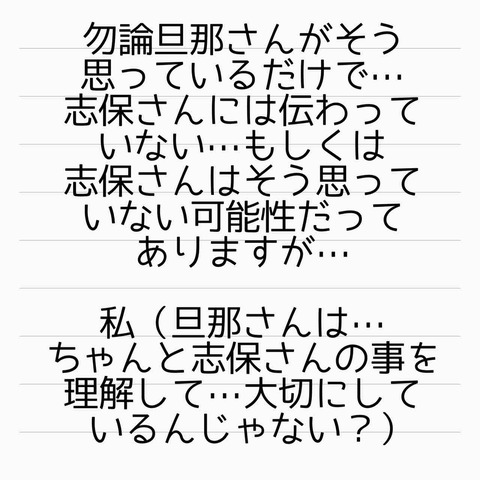 勿論旦那さんがそう
思っているだけで…
志保さんには伝わって
いない…もしくは
志保さんはそう思って
いない可能性だって
ありますが…
私（旦那さんは…
ちゃんと志保さんの事を
理解して…大切にして
いるんじゃない？）